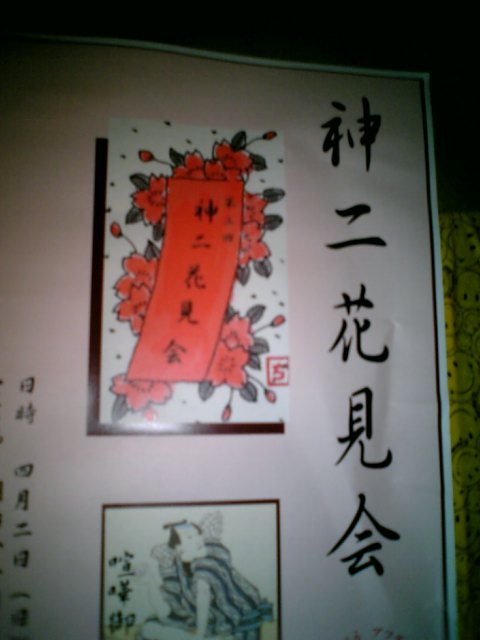 神二花見会
第三回
神二花見会
喧嘩御
日時 四月二日